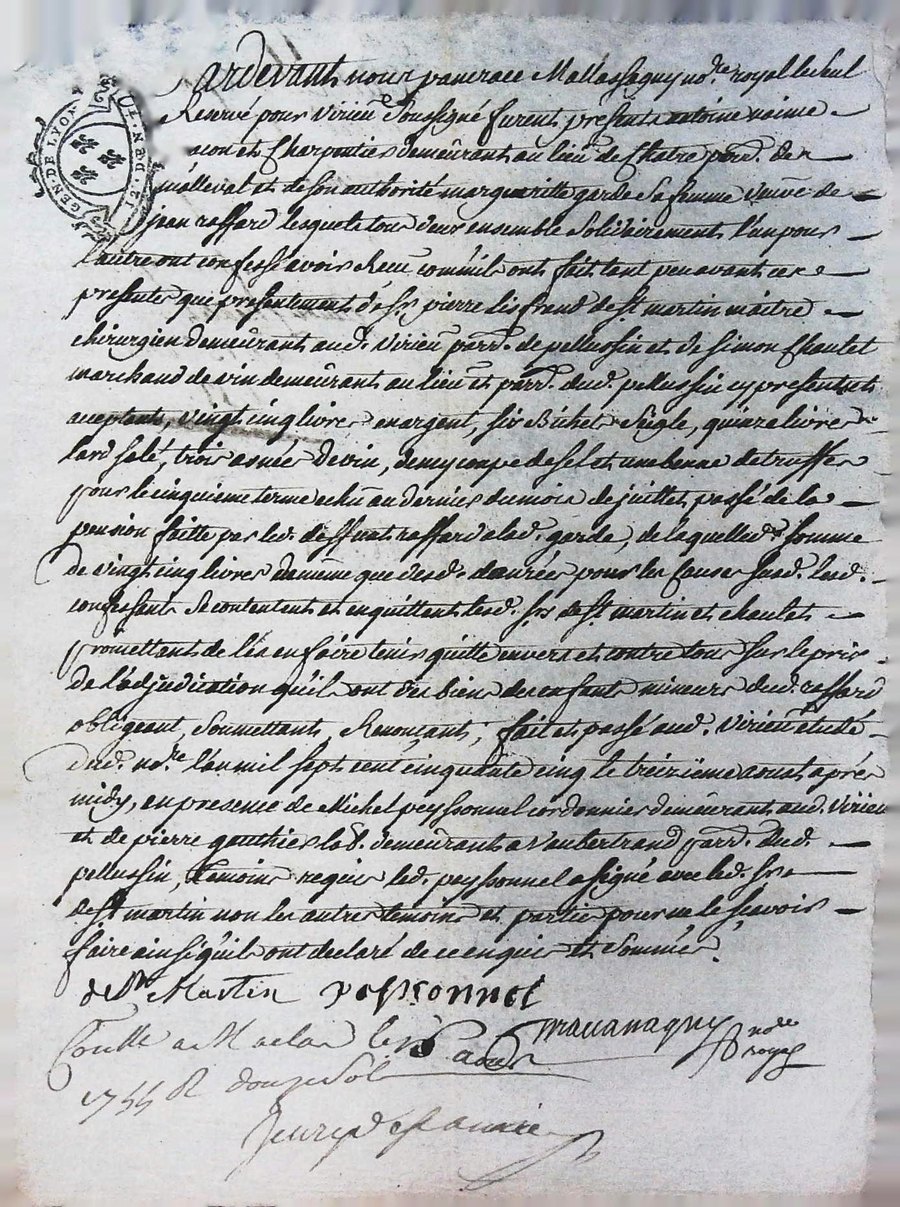 GEN. DE LYON
Pardevant nous pancrace Mallassagny no.re royal le seul
Reservé pour virieu soussigné furent présents antoine
et Charpentier demeurant au lieu de Chatre parr.e de
malleval et de son authorité margueritte garde sa femme veuve de
jean raffard lesquels tous deux ensemble solidairement l'un pour
l'autre ont confessé avoir Receu comm'ils ont fait tant peu avant ces
presentes que presentement de sr. pierre de st. martin maitre
chirurgien demeurant aud. virieu parr.e de pellussin et de simon Chaulet
marchand de vin demeurant au lieu et parr.e dud. pellussin cy presents et
acceptants, vingt cinq livres en argent, six Bichets seigle, quinze livres de
lard salé, trois asnées de vin, demy coupe de sel et une benne de truffes
pour le cinquieme terme echu au dernier du mois de juillet passé de la
pension faitte par led. deffunt raffard a lad. garde, de laquelle d. somme
de vingt cinq livres de meme que desd. danrées pour les causes susd. lesd.
confessants se contentent et en quittent lesd. srs. de st. martin et chaulet
promettant de les en faire tenir quitte envers et contre tous sur le prix
de l'adjudication qu'ils ont des biens des enfants mineurs dud. raffard
obligeant, soumettant, Renonçant, fait et passé aud. virieu etude
dud. no.re l'an mil sept cent cinquante cinq le treizième aoust après
midy, en presence de Michel peyssonnel cordonnier demeurant aud. virieu
et de pierre gauthier lab. demeurant a Vaubertrand parr.e dud.
pellussin, temoins requis led. peyssonnel a signé avec led. sr.
de st martin non les autres temoins et parties pour ne le sçavoir
faire ainsi qu'ils ont declaré de ce enquis et sommés.
de st Martin peyssonnel
no.re
royal
Conllé a Maclas le aoust
1755 R douze sols